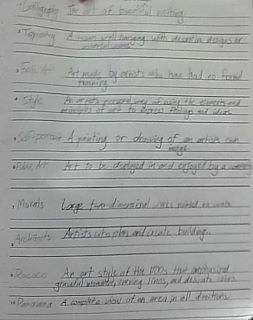 Calligraphy The art of beautiful writing.
Tapestry A woven wall hanging with decorative designs or
Folk Art Art made by artists who have had no formal
training.
Style An artist's personal way of using the elements and
principles of art to express feelings and ideas
Self-portrait A painting or drawing of an artist's own
image.
Public Art Art to be displayed in and enjoyed by a
Murals Large two-dimensional works painted on walls
Architects Artists who plan and create buildings.
Rococo An art style of the 1700s that emphasized
graceful movement, curving lines, and delicate colors
Panorama A complete view of an area in all directions.